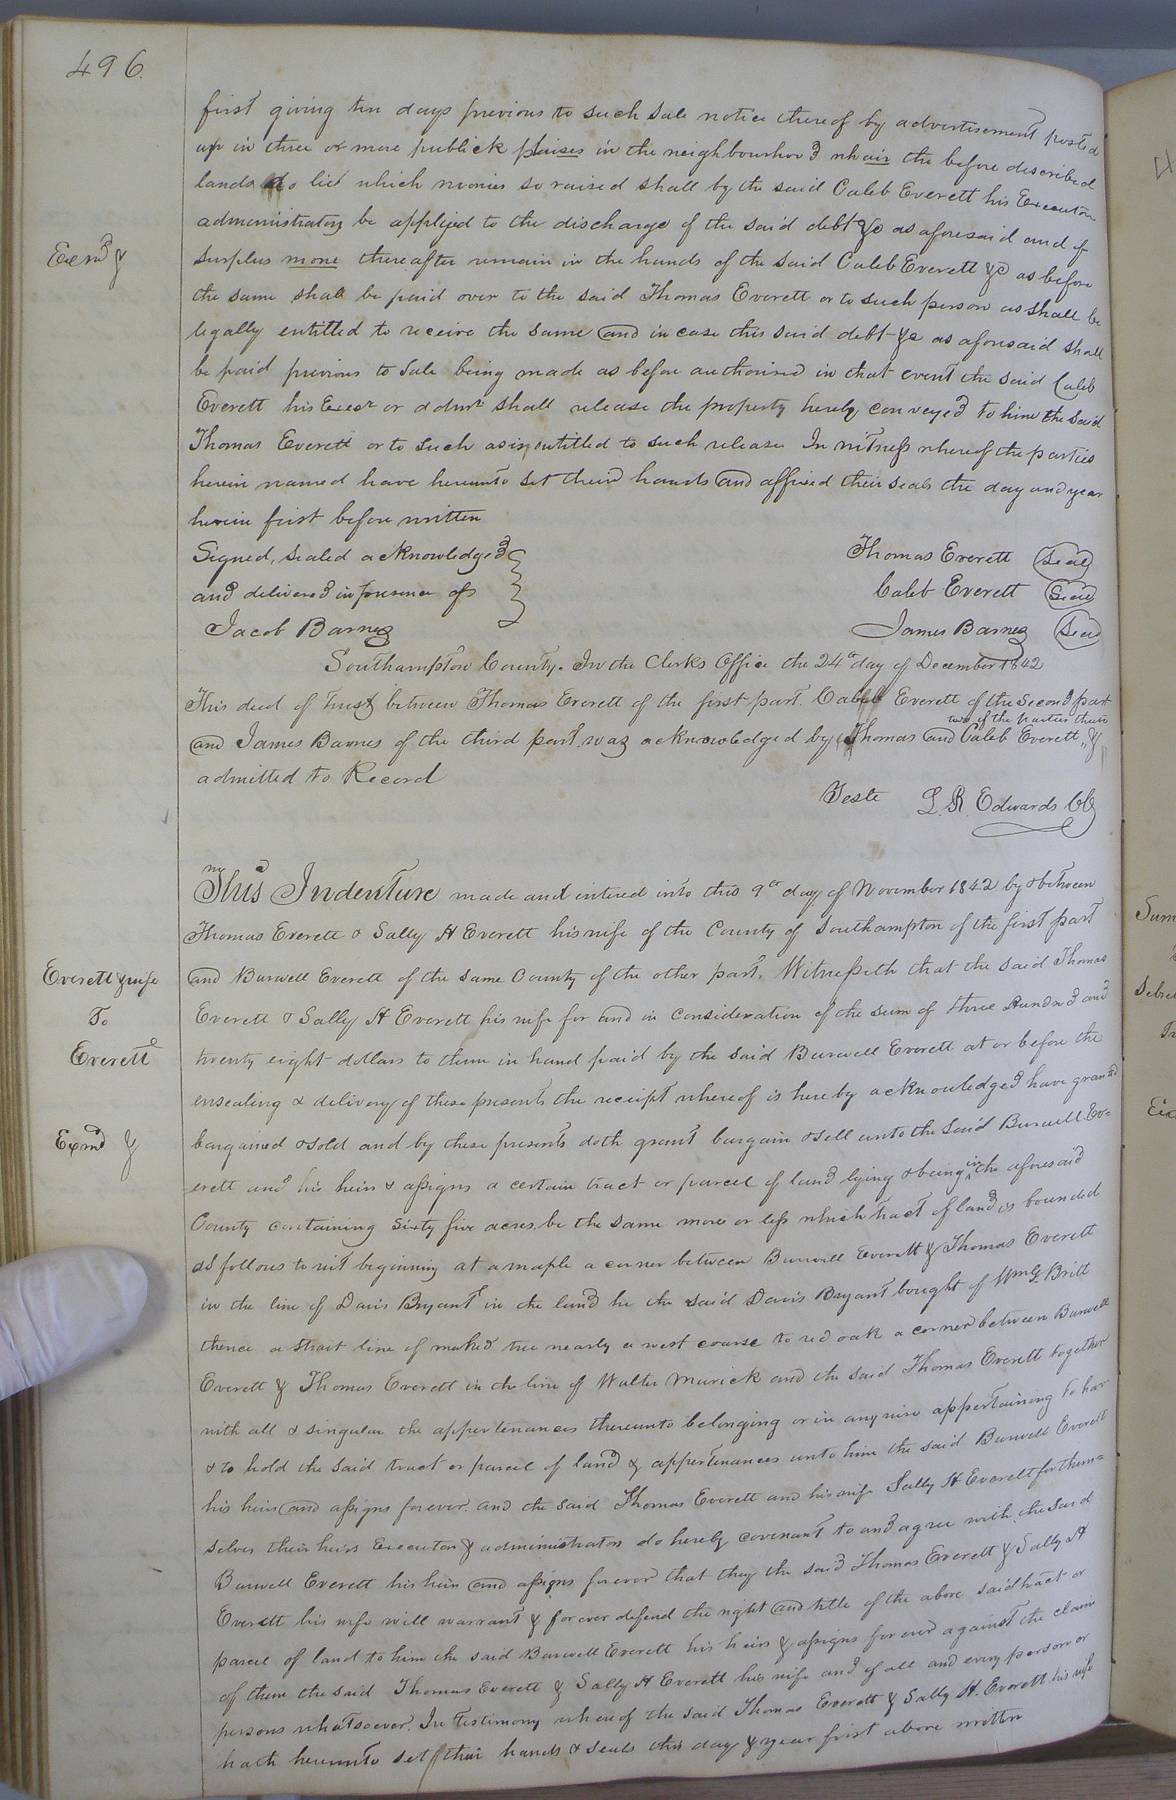 496.
first giving ten days previous to such sale notice thereof by advertisement posted
up in three or more publick plaises in the neighbourhood whair the before described
lands do lie which monies so raised shall by the said Caleb Everett his Executor
administrators be applyed to the discharge of the said debt &c as aforesaid and if
Exmd &
surplus mone thereafter remain in the hands of the said Caleb Everett &c as before
the same shall be paid over to the said Thomas Everett or to such person as shall be
legally entitled to receive the same and in case this said debt &c as aforesaid shall
be paid previous to Sale being made as before authorised in that event the said Caleb
Everett his Execr or admr shall release the property hereby conveyed to him the said
Thomas Everett or to such as is entitled to such release In witness whereof the parties
herein named have hereunto set their hands and affixed their seals the day and year
herein first before written
Signed, sealed acknowledged
and delivered in presence of
Jacob Barnes
Thomas Everett (Seal)
Caleb Everett (Seal)
James Barnes (Seal)
Southampton County. In the Clerks Office the 24th day of December 1842
This deed of trust between Thomas Everett of the first part. Caleb Everett of the Second part
two of the parties thereto
and James Barnes of the third part, was acknowledged by Thomas and Caleb Everett, &
admitted to Record
Teste L. R. Edwards CC
This Indenture made and entered into this 9th day of November 1842 by & between
Thomas Everett & Sally H Everett his wife of the County of Southampton of the first part
Everett & wife
To
Everett
and Burwell Everett of the same County of the other part. Witnesseth that the said Thomas
Everett & Sally H Everett his wife for and in consideration of the sum of three Hundred and
twenty eight dollars to them in hand paid by the said Burwell Everett at or before the
ensealing & delivery of these presents the receipt whereof is hereby acknowledged have granted
Exmd &
bargained & sold and by these presents doth grant bargain & sell unto the said Burwell Ev=
erett and his heirs & assigns a certain tract or parcel of land lying & being in the aforesaid
County containing Sixty five acres be the same more or less which tract of land is bounded
as follows to wit beginning at a maple a corner between Burwell Everett & Thomas Everett
in the line of Davis Bryant in the land he the said Davis Bryant bought of Wm G Britt
thence a strait line of maked tree nearly a west course to red oak a corner between Burwell
Everett & Thomas Everett in the line of Walter Murick and the said Thomas Everett together
with all & singular the appertenances thereunto belonging or in any wise appertaining to hav
& to hold the said tract or parcel of land & appertenances unto him the said Burwell Everett
his heirs and assigns forever. and the said Thomas Everett and his wife Sally H Everett for them=
selves their heirs Executors & administrators do hereby covenant to and agree with the said
Burwell Everett his heirs and assigns forever that they the said Thomas Everett & Sally H
Everett his wife will warrant & forever defend the right and title of the above said tract or
parcel of land to him the said Burwell Everett his heirs & assigns forever against the claim
of them the said Thomas Everett & Sally H Everett his wife and of all and every person or
persons whatsoever. In testimony whereof the said Thomas Everett & Sally H. Everett his wife
hath hereunto set their hands & seals this day & year first above written
Sum